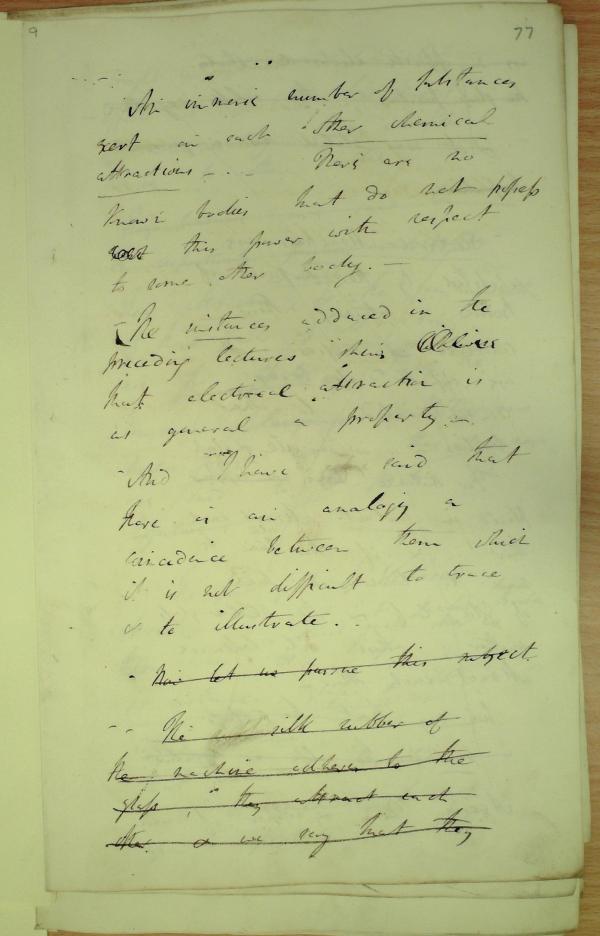 9 77
An immense number of substances
exert on each other chemical
attractions - . - There are no
known bodies that do not possess
this power with respect
to some other body. -
The instances adduced in the
preceding lectures shew
that electrical attraction is
as general a property. -
And I have said that
there is an analogy a
coincidence between them which
it is not difficult to trace
& to illustrate. .
- Now let us pursue this subject.
- - The silk rubber of
the machine adheres to the
glass, they attract each
other. & we say that they